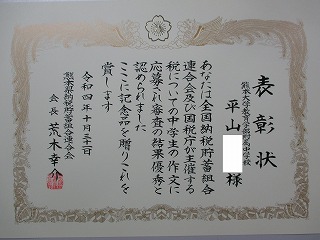 表彰状
熊本大学教育学部附属中学校
平山 様
あなたは全国納税貯蓄組合
連合会及び国税庁が主催する
税についての中学生の作文に
応募され審査の結果優秀と
認められました
ここに記念品を贈りこれを
賞します
令和四年十月三十一日
熊本県納税貯蓄組合連合会
会長 荒木幸介